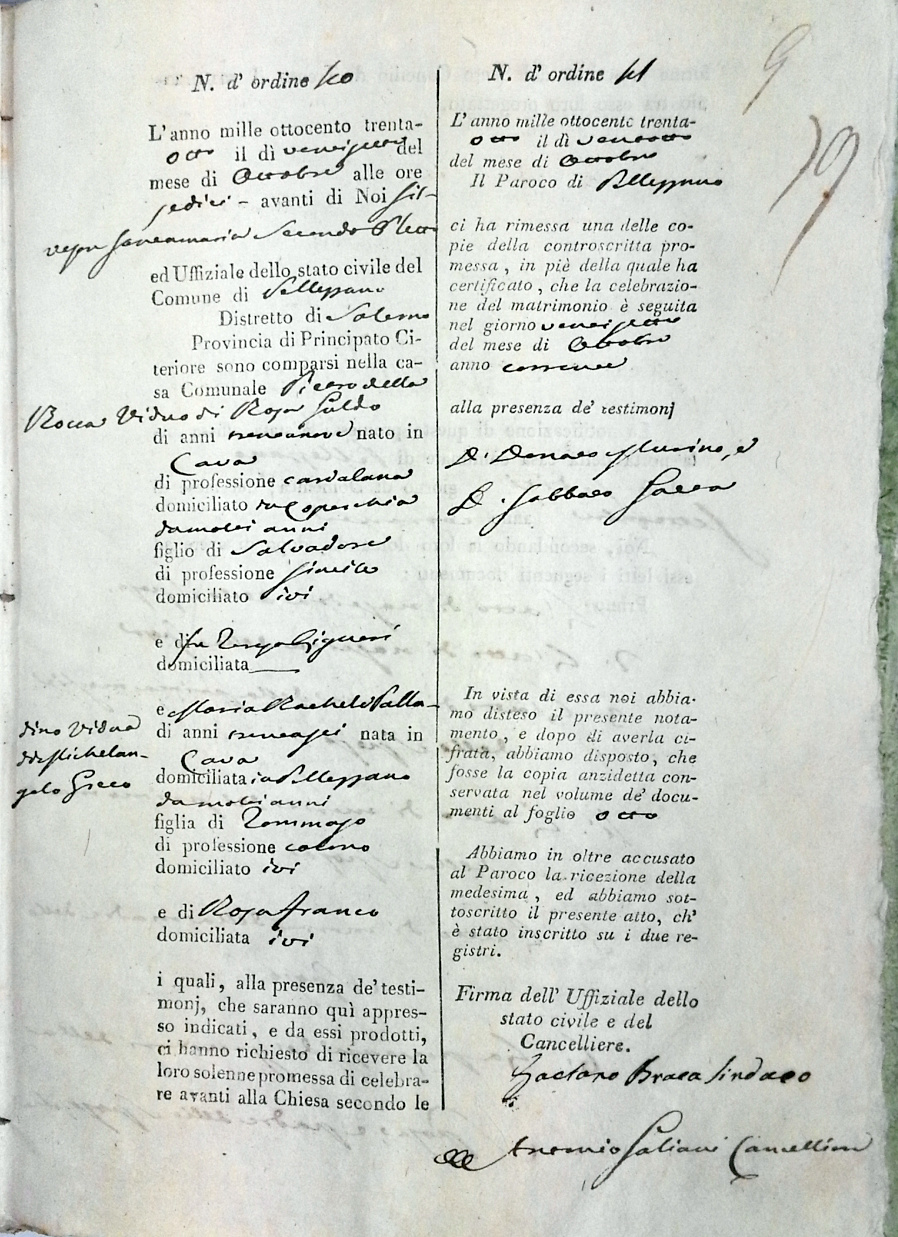 N. d' ordine
L'anno mille ottocento trenta-
otto il dì ventisette del
mese di Ottobre alle ore
sedici - avanti di Noi Sil-
vestro Santamaria Secondo Eletto
ed Uffiziale dello stato civile del
Comune di Pellezzano
Distretto di Salerno
Provincia di Principato Ci-
teriore sono comparsi nella ca-
sa Comunale Pietro della
Rocca Viduo di Rosa Galdo
di anni trentanove nato in
Cava
di professione
domiciliato in Coperchia
da molti anni
figlio di Salvadore
di professione simile
domiciliato ivi
e di fu
domiciliata
e Maria Rachele Palla-
dino Vidua
di Michelan-
gelo Greco
di anni trentasei nata in
Cava
domiciliata in Pellezzano
da molti anni
figlia di Tommaso
di professione
domiciliato ivi
e di Rosa Franco
domiciliata ivi
i quali, alla presenza de' testi-
monj, che saranno quì appres-
so indicati, e da essi prodotti,
ci hanno richiesto di ricevere la
loro solenne promessa di celebra-
re avanti alla Chiesa secondo le
N. d' ordine
L'anno mille ottocento trenta-
otto il dì ventotto
del mese di Ottobre
Il Paroco di Pellezzano
ci ha rimessa una delle co-
pie della controscritta pro-
messa, in piè della quale ha
certificato, che la celebrazio-
ne del matrimonio è seguita
nel giorno ventisette
del mese di Ottobre
anno corrente
alla presenza de' testimonj
D. Donato Murino, e
D. Gabbato
In vista di essa noi abbia-
mo disteso il presente nota-
mento, e dopo di averla ci-
frata, abbiamo disposto, che
fosse la copia anzidetta con-
servata nel volume de' docu-
menti al foglio otto
Abbiamo in oltre accusato
al Paroco la ricezione della
medesima, ed abbiamo sot-
toscritto il presente atto, ch'
è stato inscritto su i due re-
gistri.
Firma dell' Uffiziale dello
stato civile e del
Cancelliere.
Gaetano Braca Sindaco
Antonio Galiani Cancelliere
9
79